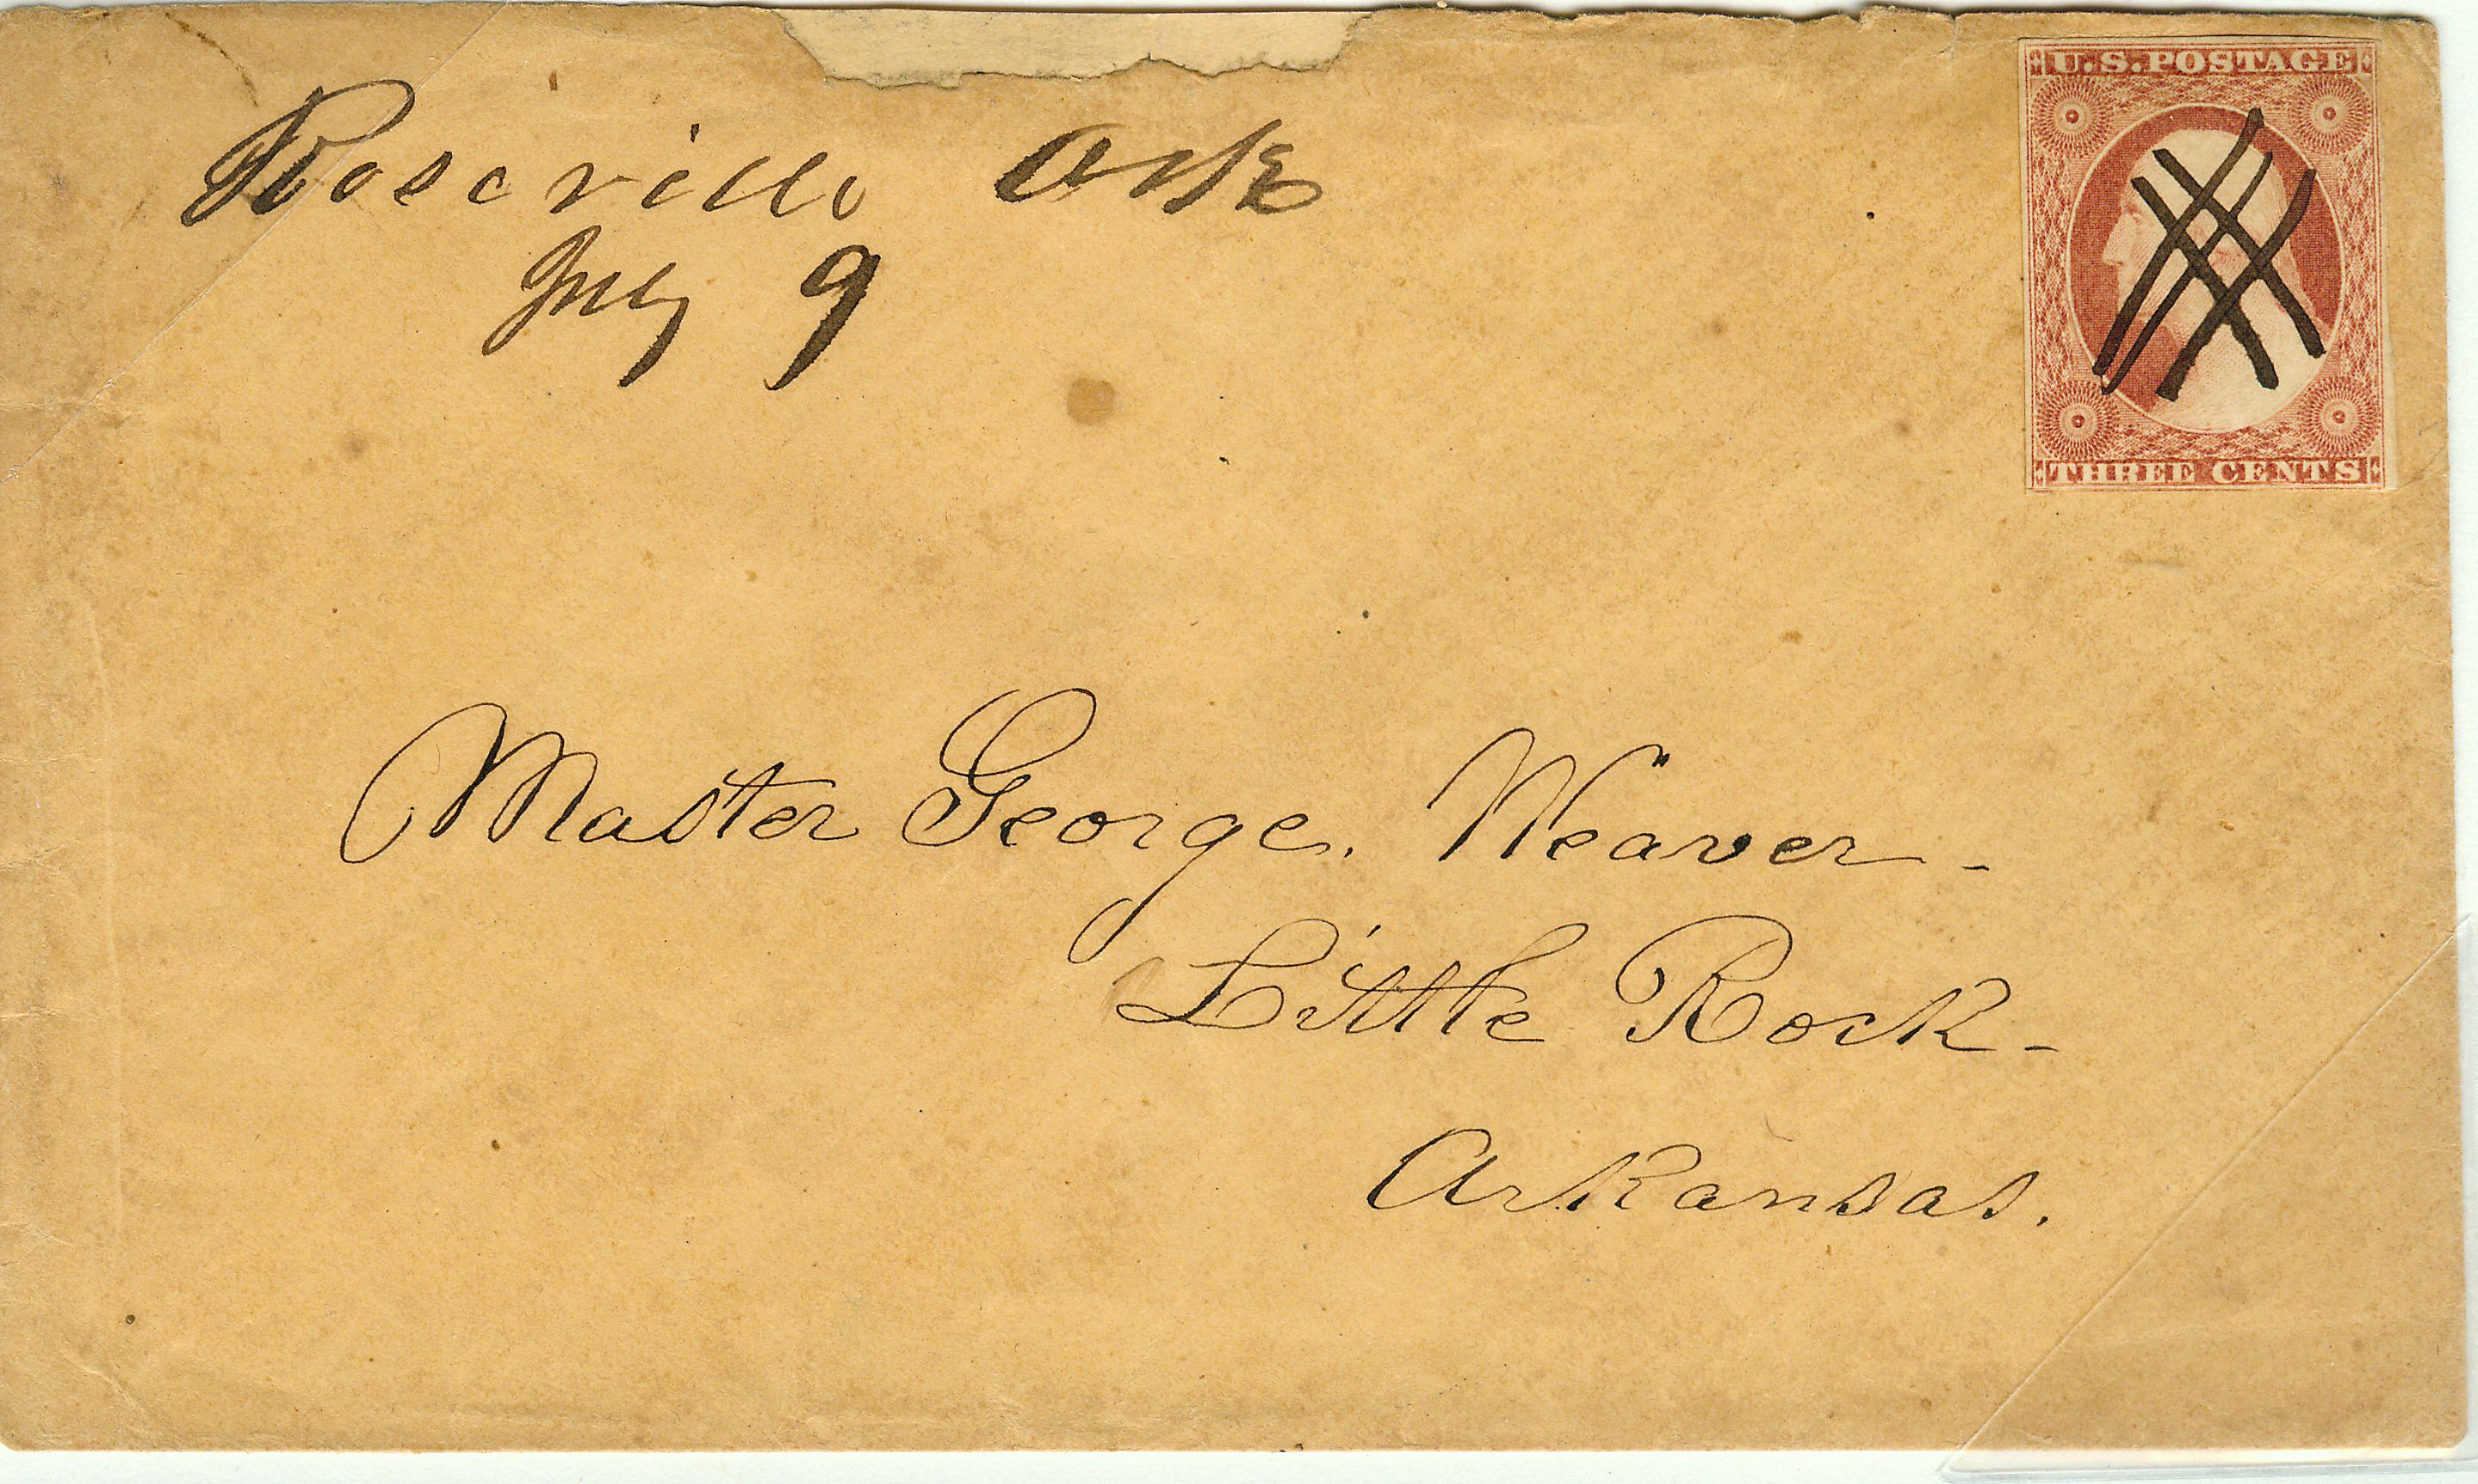 Roseville Ark
July 9
U.S. POSTAGE
THREE CENTS
Master George. Weaver-
Little Rock-
Arkansas.